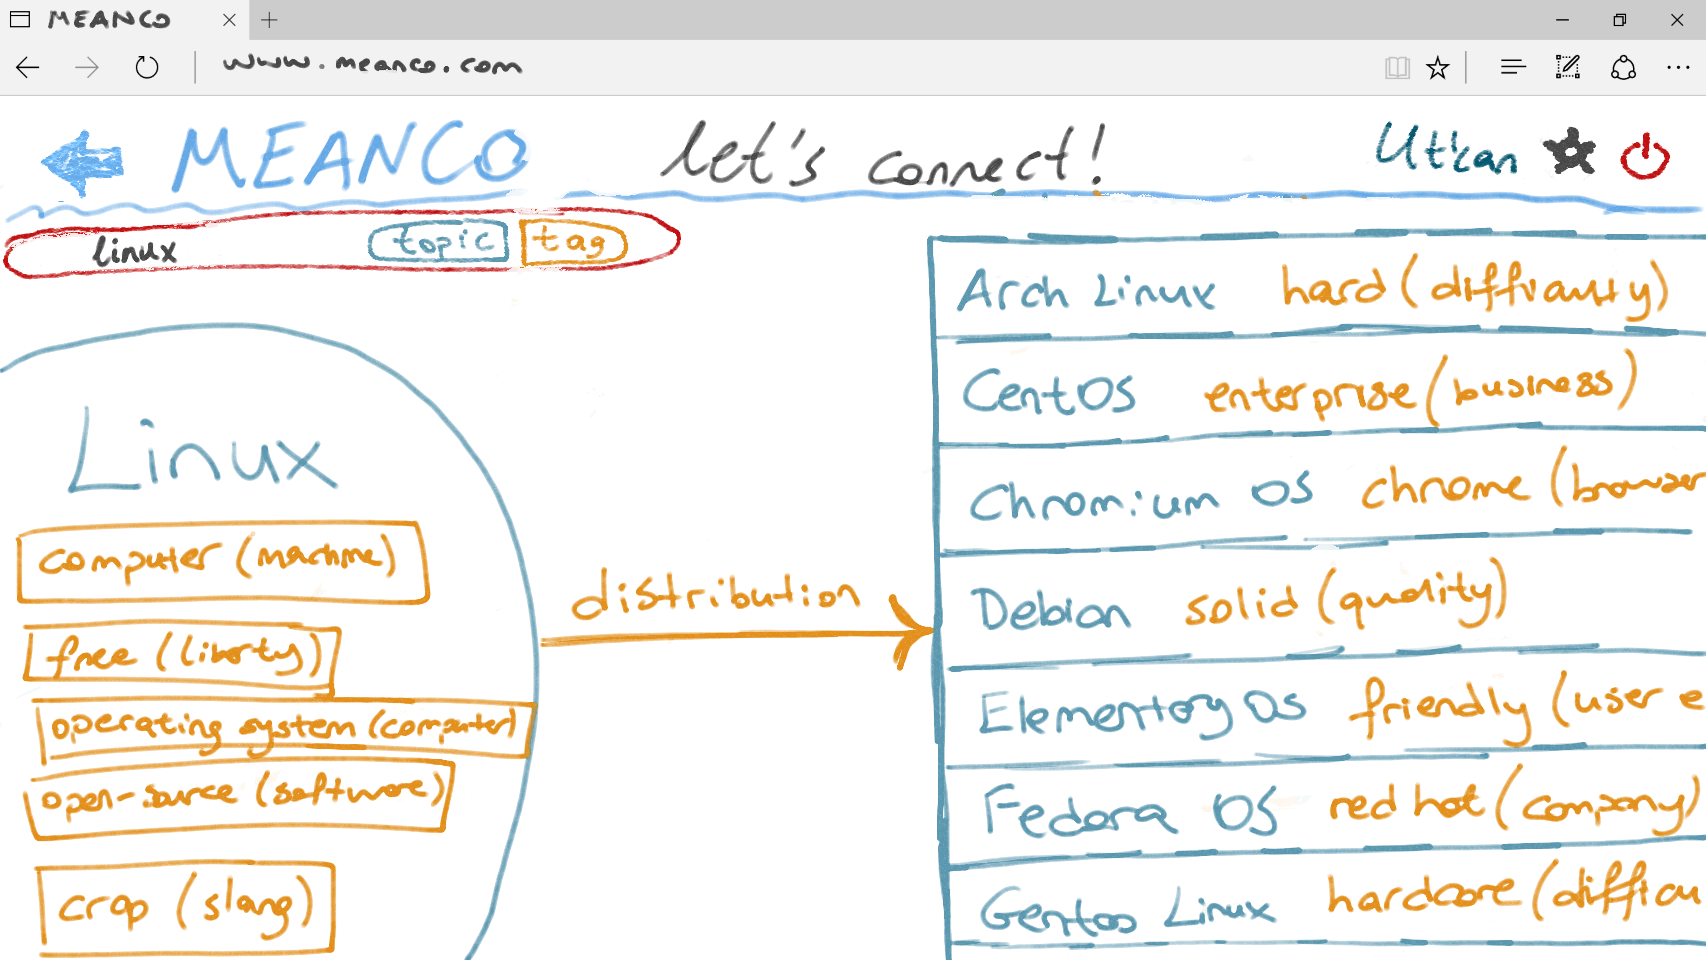 MEANCO
www.meanco.com
MEANCO let's connect! Utkan
linux topic tag
Linux
computer (machine)
free (liberty)
operating system (computer)
open-source (software)
crap (slang)
distribution
Arch Linux hard (difficulty)
CentOS enterprise (business)
Chromium OS chrome (browser
Debian solid (quality)
Elementary OS friendly (user e
Fedora OS red hat (company)
Gentoo Linux hardcore (difficu